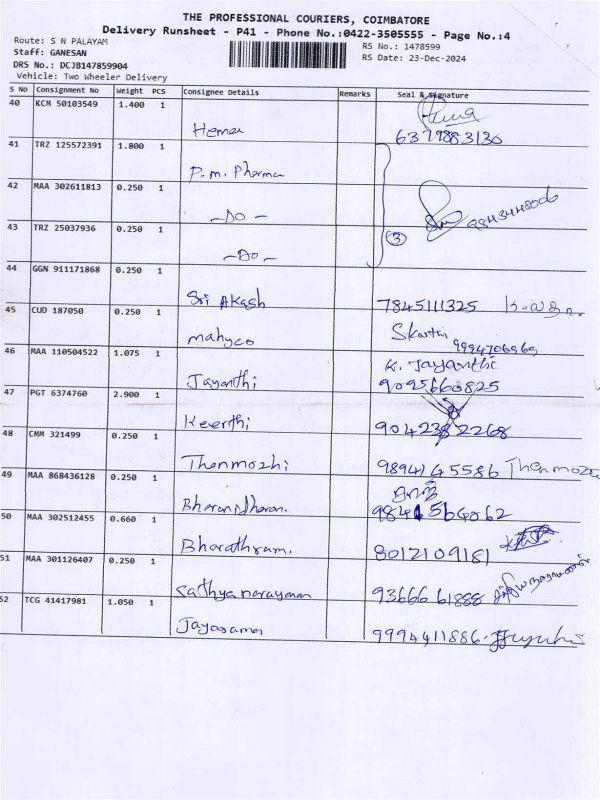 THE PROFESSIONAL COURIERS, COIMBATORE
Delivery Runsheet - P41 - Phone No.:0422-3505555 - Page No.:4
Route: S N PALAYAM
RS No.: 1478599
Staff: GANESAN
RS Date: 23-Dec-2024
DRS No.: DCJB147859904
Vehicle: Two Wheeler Delivery
S No Consignment No Weight PCS Consignee Details Remarks Seal & Signature
40 KCM 50103549 1.400 1
Hema 6379883130
41 TRZ 125572391 1.800 1
P.m. Pharma
42 MAA 302611813 0.250 1
-Do- 9843448006
43 TRZ 25037936 0.250 1
3
-Do-
44 GGN 911171868 0.250 1
Sri Akash 7845111325
45 CUD 187050 0.250 1
mahyco 9994706969
46 MAA 110504522 1.075 1 K. Jayanthi
Jayanthi 9095660825
47 PGT 6374760 2.900 1
Keerthi 9042382268
48 CMM 321499 0.250 1
Thenmozhi 9894145586 Thenmozhi
49 MAA 868436128 0.250 1
Bharanidharan. 9841564062
50 MAA 302512455 0.660 1
Bharathram. 8012109181
51 MAA 301126407 0.250 1
Sathyanarayanan 9366661888
52 TCG 41417981 1.050 1
Jayaraman 9994411886